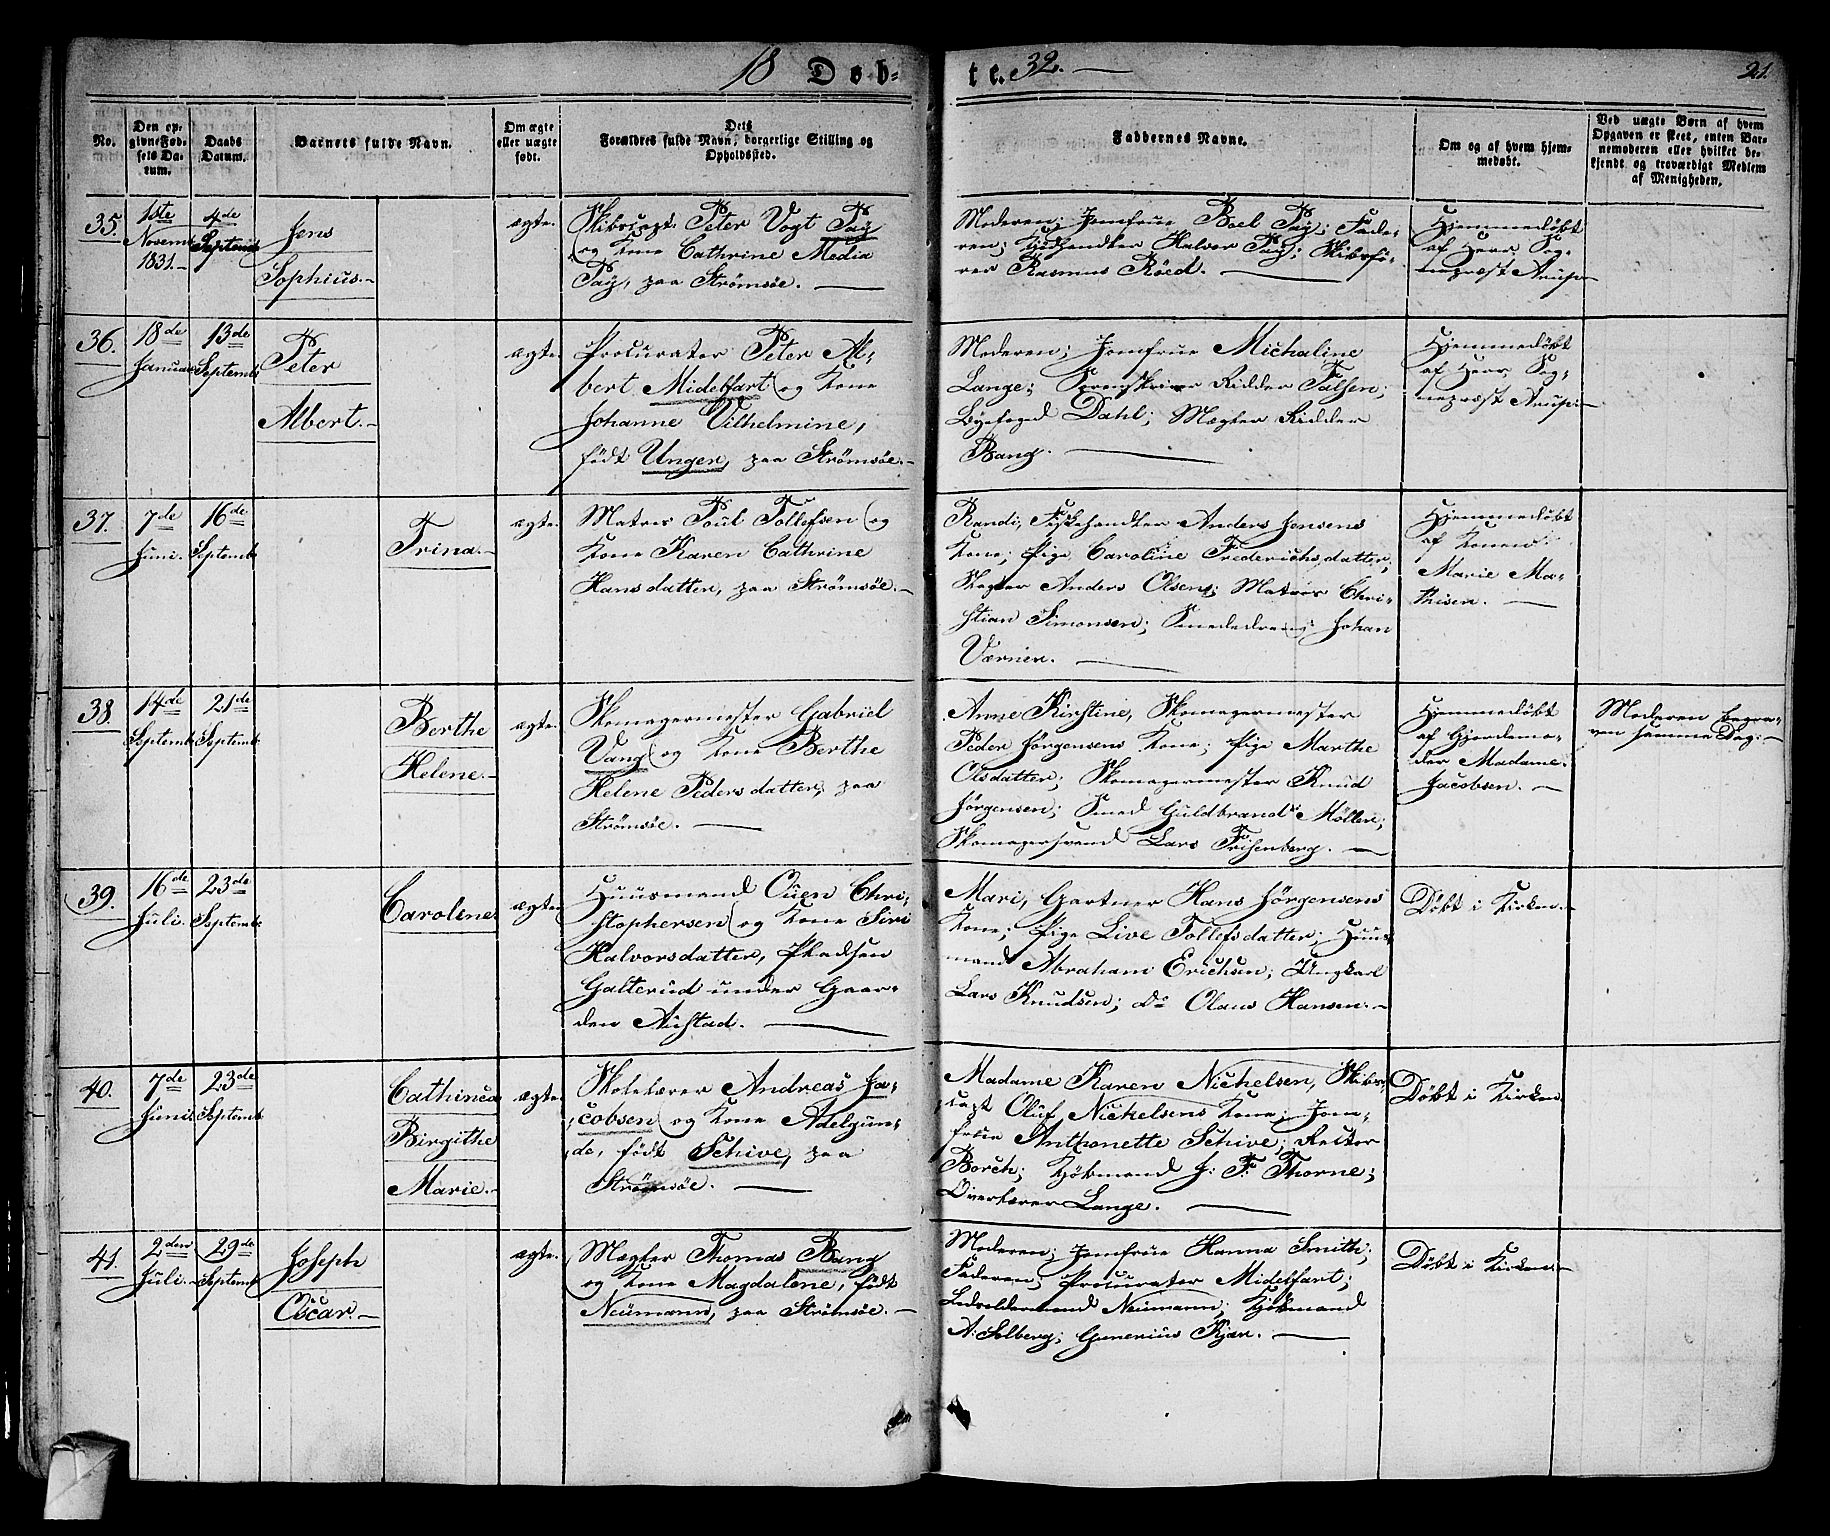 18 Døb-
te. 32.
21.
No.
Den op-
givne Fød-
sels Da-
tum.
Daabs
Datum.
Barnets fulde Navn.
Om ægte
eller uægte
født.
Dets
Forældres fulde Navn, borgerlige Stilling og
Opholdssted.
Faddernes Navne.
Om og af hvem hjem-
medøbt.
Ved uægte Børn af hvem
Opgaven er skeet, enten Bar-
nemoderen eller hvilket be-
kjendt og troværdigt Medlem
af Menigheden.
35.
1ste
Novemb.
1831.-
4de
Septemb.
Jens
Sophius.-
ægte.
Peter Vogt Pay
og Kone Cathrine Media
Pay, paa Strømsøe.
Moderen; Jomfrue Boel Pay; Fade-
ren; Halvor Pay; Skibsfø-
rer Rasmus Röed.
Hjemmedøbt
af Herr Sog-
nepræst Arup.-
36.
18de
Januar.
13de
Septemb.
Peter
Albert.-
ægte.
Procurator Peter Al-
bert Midelfart og Kone
Johanne Vilhelmine,
født Unger, paa Strømsøe.-
Moderen; Jomfrue Michaline
Lange; Sorenskriver Ridder Falsen;
Byefoged Dahl; Mægler Ridder
Bang.
Hjemmedøbt
af Herr Sog-
nepræst Arup.-
37.
7de
Juni.
16de
Septemb.
Trina.-
ægte.
Matros Poul Tollefsen og
Kone Karen Cathrine
Hansdatter, paa Strømsøe.-
Randi, Fiskehandler Anders Jensens
Kone; Pige Caroline Frederichsdatter;
Anders Olsen; Matros Chri-
stian Simonsen; Smededreng Johan
Værnier.
Hjemmedøbt
af Konen
Marie Ma-
thisen.
38.
14de
Septemb.
21de
Septemb.
Berthe
Helene.-
ægte.
Skomagermester Gabriel
Vang og Kone Berthe
Helene Pedersdatter, paa
Strømsøe.
Anne Kirstine, Skomagermester
Peder Jørgensens Kone; Pige Marthe
Olsdatter; Skomagermester Knud
Jørgensen; Smed Guldbrand Möller;
Skomagersvend Lars Frisenberg.
Hjemmedøbt
af Gjordemo-
der Madame
Jacobsen.
Moderen begra-
ven samme Dag.-
39.
16de
Juli.
23de
Septemb.
Caroline
ægte.
Huusmand Ouen Chri-
stophersen og Kone Siri
Halvorsdatter, Pladsen
Galterud under Gaar-
den Austad.
Mari, Gartner Hans Jørgensens
Kone; Pige Live Tollefsdatter; Huus-
mand Abraham Erichsen; Ungkarl
Lars Knudsen; do Olaus Hansen.-
Døbt i Kirken.-
40.
7de
Juni
23de
Septemb.
Cathinca
Birgithe
Marie.-
ægte.
Skolelærer Andreas Ja-
cobsen og Kone Adelgun-
de, født Schive, paa
Strømsøe.
Madame Karen Nichelsen, Skibs-
Oluf Nichelsens Kone; Jom-
frue Anthonette Schive; Rector
Borch; Kjøbmand J. F. Thorne;
Overlærer Lange.
Døbt i Kirken
41.
2den
Juli.-
29de
Septemb.
Joseph
Oscar.-
ægte.
Mægler Thomas Bang
og Kone Magdalene, født
Neumann, paa Strømsøe.-
Moderen; Jomfrue Hanna Smith;
Faderen; Procurator Midelfart;
Neumann; Kjøbmand
A. Solberg; Gunerius Kjær.
Døbt i Kirken.-